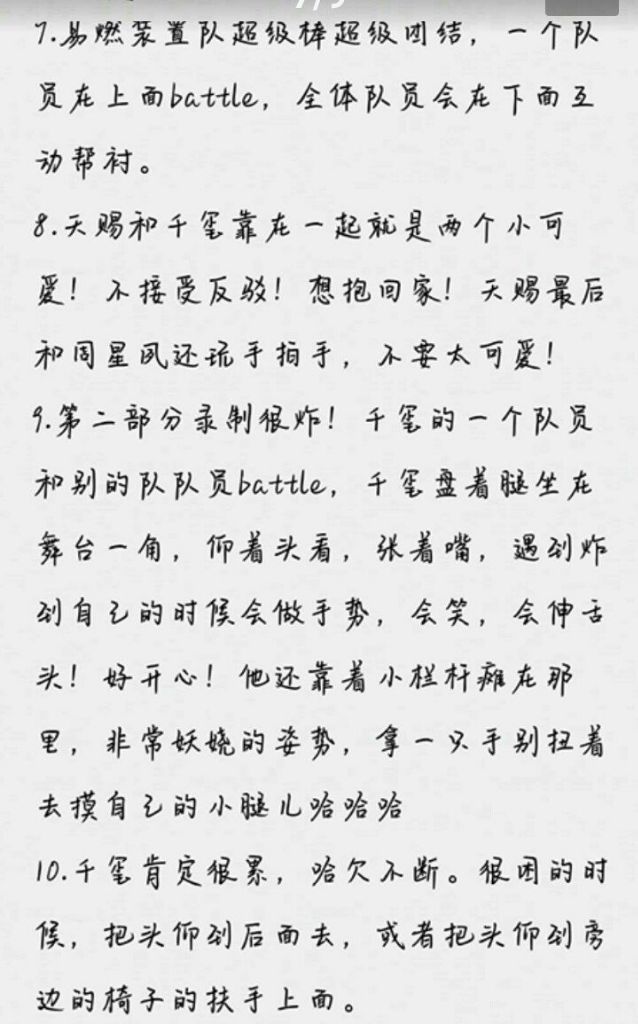 7.易燃装置队超级棒超级团结，一个队
员在上面battle，全体队员会在下面互
动帮衬。
8.天赐和千玺靠在一起就是两个小可
爱！不接受反驳！想抱回家！天赐最后
和周星凤还玩手拍手，不要太可爱！
9.第二部分录制很炸！千玺的一个队员
和别的队队员battle，千玺盘着腿坐在
舞台一角，仰着头看，张着嘴，遇到炸
到自己的时候会做手势，会笑，会伸舌
头！好开心！他还靠着小栏杆瘫在那
里，非常妖娆的姿势，拿一只手别扭着
去摸自己的小腿儿哈哈哈
10.千玺肯定很累，哈欠不断。很困的时
候，把头仰到后面去，或者把头仰到旁
边的椅子的扶手上面。